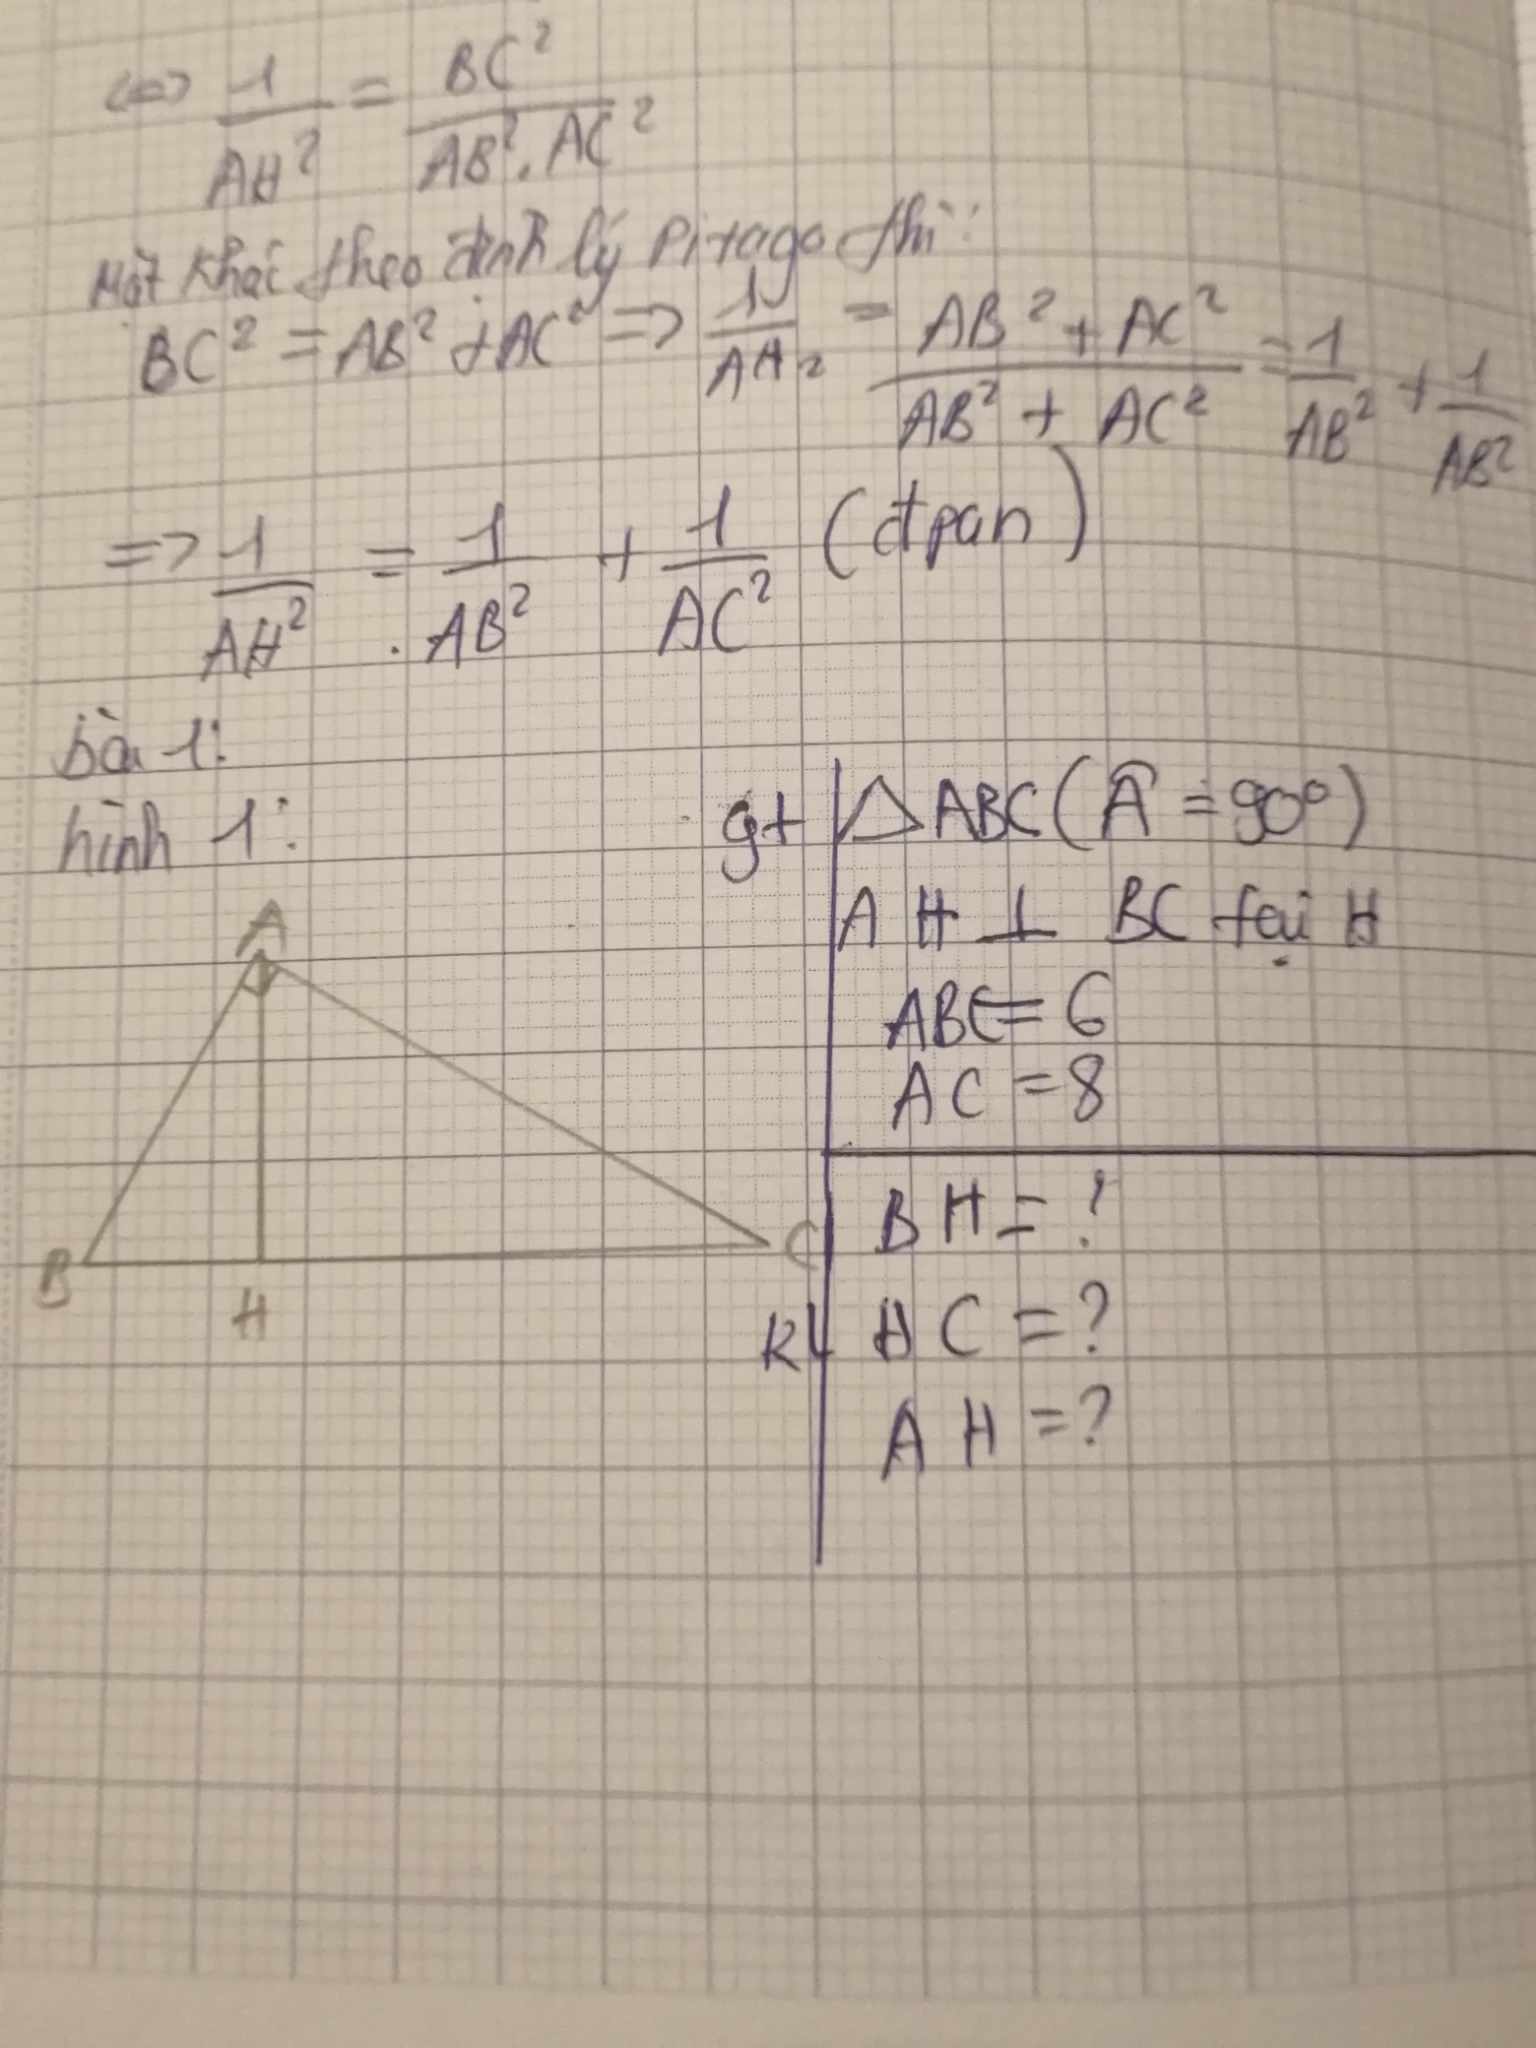 <=> 1/AH² = BC²/AB².AC²
Mặt khác theo định lý Pitago thì:
BC² = AB² + AC² => 1/AH² = AB² + AC²/AB² + AC² = 1/AB² + 1/AB²
=> 1/AH² = 1/AB² + 1/AC² (đpcm)
bài 1:
hình 1:
gt △ABC (Â = 90°)
AH ⊥ BC tại H
AB = 6
AC = 8
BH = ?
kl HC = ?
AH = ?
A
B
H
C